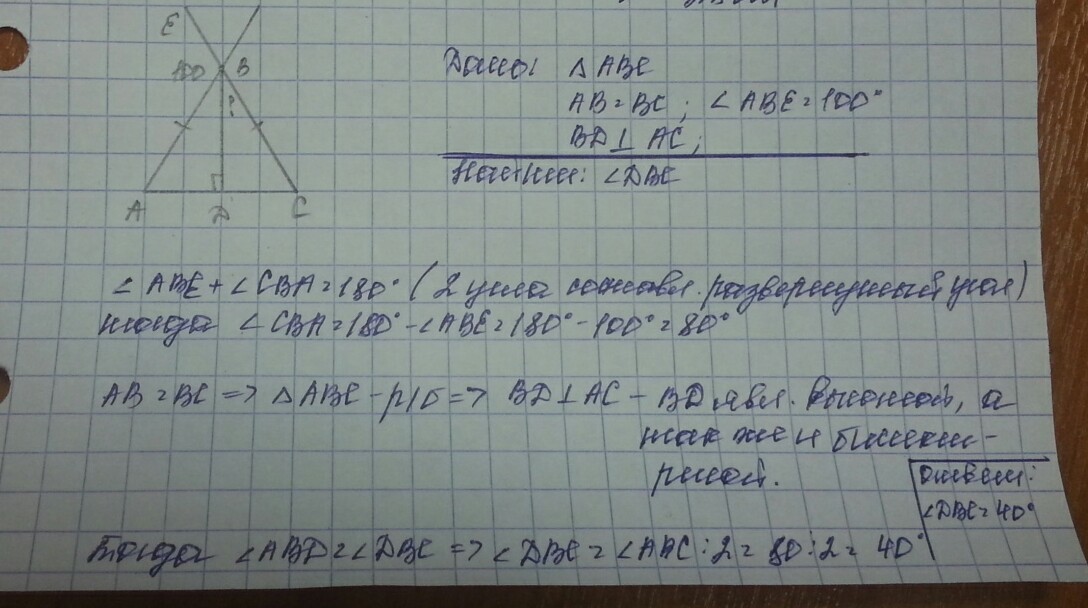 E
100 B
?
A D C
Дано: △ABC
AB=BC; ∠ABE=100°
BD⊥AC;
Найти: ∠DBC
∠ABE+∠CBA=180° (2 угла составл. развернутый угол)
тогда ∠CBA=180°-∠ABE=180°-100°=80°
AB=BC => △ABC-р/б=> BD⊥AC - BD явл. высотой, а
так же и биссект-
рисой.
ответ:
∠DBC=40°
Тогда ∠ABD=∠DBC => ∠DBC=∠ABC:2=80:2=40°